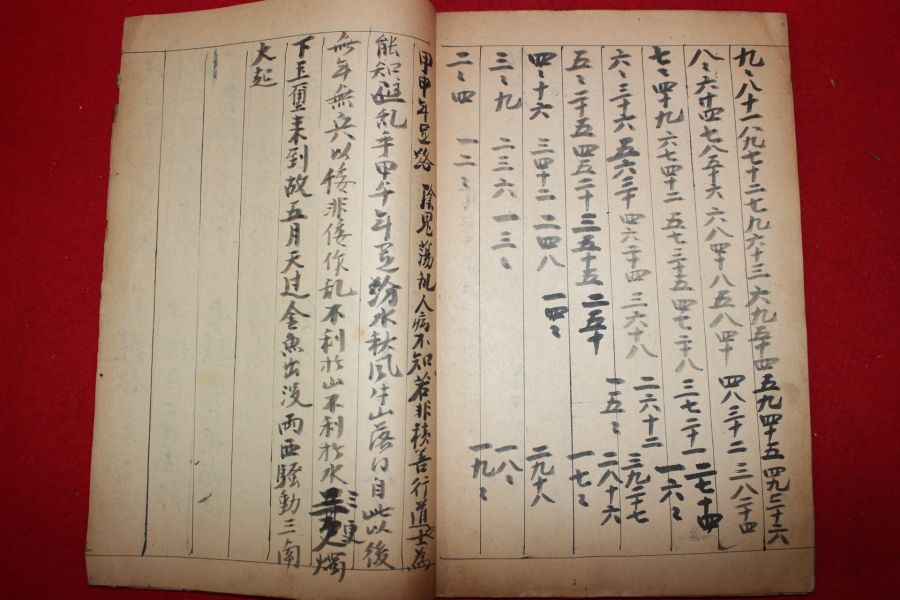 九〻八十一 八九七十二 七九六十三 六九五十四 五九四十五 四九三十六
八〻六十四 七八五十六 六八四十八 五八四十 四八三十二 三八二十四
七〻四十九 六七四十二 五七三十五 四七二十八 三七二十一 二七十四
六〻三十六 五六三十 四六二十四 三六十八 二六十二 一六〻 三九二十七
五〻二十五 四五二十 三五十五 二五十 一五〻 二八十六 一七〻
四〻十六 三四十二 二四八 一四〻 二九十八
三〻九 二三六 一三〻 一八〻
二〻四 一二〻 一九〻
甲申年足路 陰鬼荡乱人病不知若非積善行道士為
能知避乱乎甲午年足紛水秋風牛山落日自此以後
無年無兵以倭非倭作乱不利於山不利於水三更燭
下玉璽来到故五月天过金魚出没両西騷動三南
大起